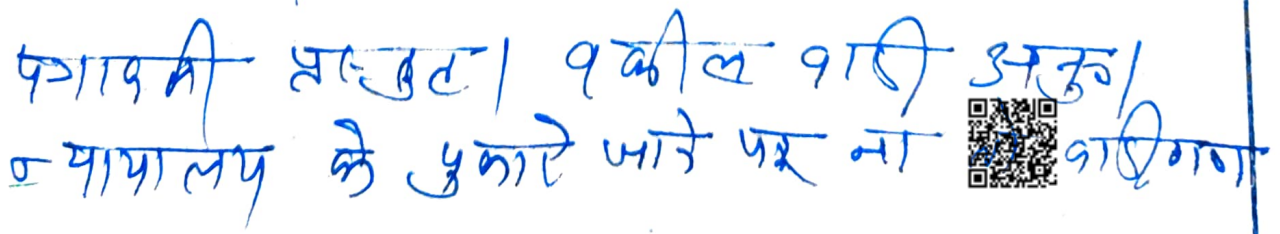 पत्रावली प्रस्तुत। वकील वादी अनु०।
न्यायालय के पुकारे जाने पर ना वादीगण